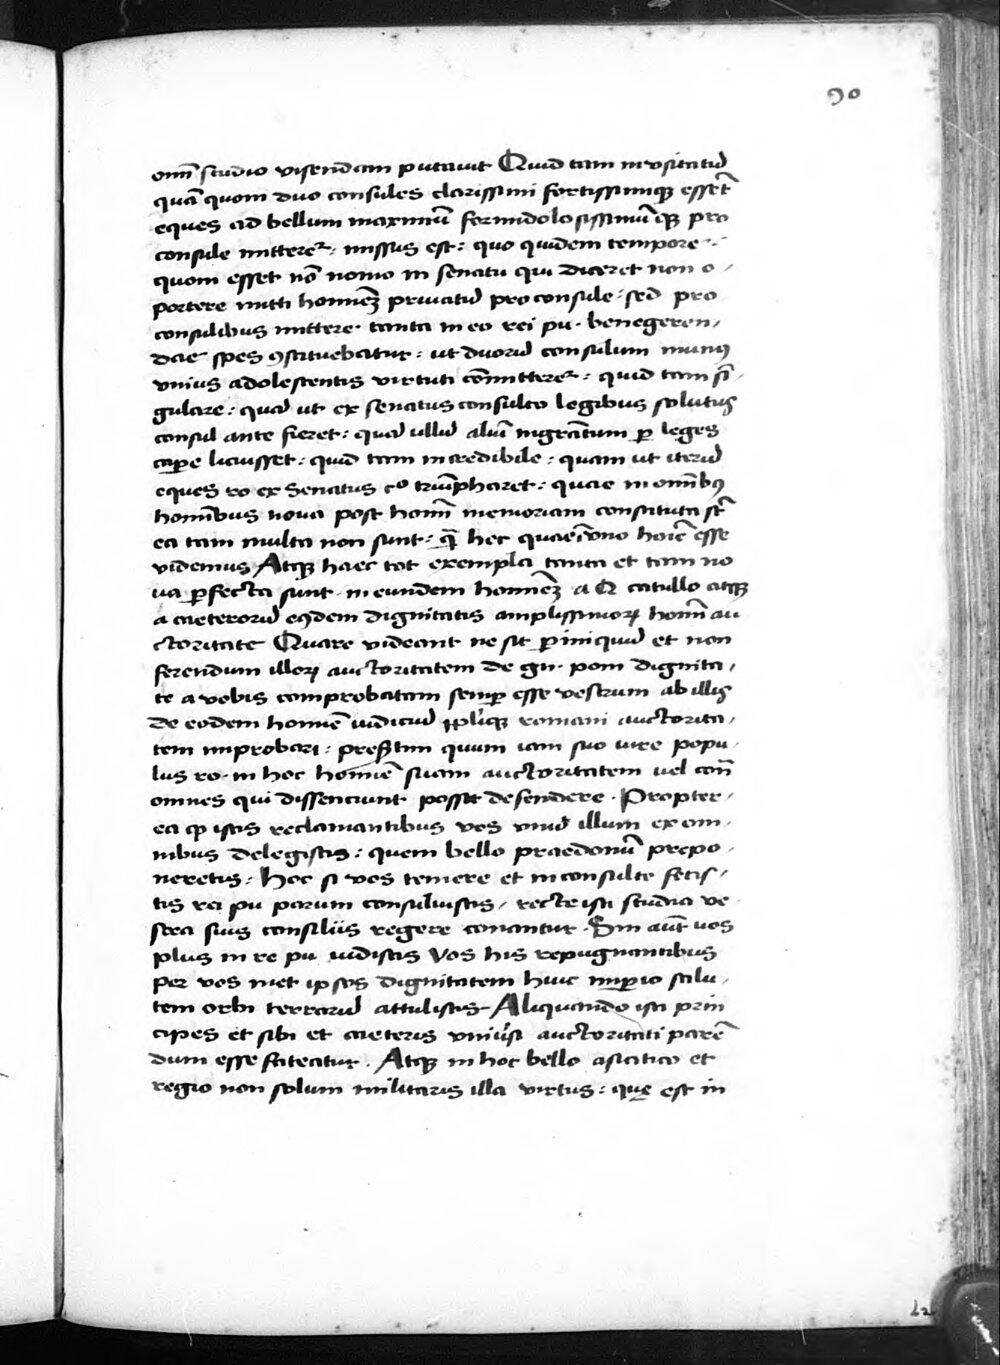 90
om̄i studio visendam putavit Quid tam inusitatū
quā quom duo consules clarissimi fortissimiqꝫ esset̄
eques ad bellum maximū formidolosissimūqꝫ pro
consule mitteret᷑ · missus est : quo quidem tempore
quom esset nō nomo in senatu qui diceret non o /
portere mitti homineꝫ privatū pro consule · sed pro
consulibus mittere · tanta in eo rei pu · benegeren /
dae spes ꝯstituebatur : ut duorū consulum munꝰ
unius adolescentis virtuti com̄itteret᷑ : quid tam sī ·
gulare : quā ut ex senatus consulto legibus solutus
consul ante fieret : quā ullū aliū magratum ꝑ leges
capere licuisset : quid tam incredibile : quam ut iterū
eques ro ex senatus cͦ triūpharet : quae in om̄ibꝰ
hominibus nova post homī memoriam constituta st̄
ea tam multa non sunt : q̄ hec quae ī uno hoīe esse
videmus Atqꝫ haec tot exempla tanta et tam no
va ꝑfecta sunt · in eundem homineꝫ a Q catullo atqꝫ
a caeterorū eꝰdem dignitatis amplissimoꝝ homī au
ctoritate Quare videant ne sit ꝑiniquū et non
ferendum illoꝝ auctoritatem de gn · pom dignita /
te a vobis comprobatam semꝑ esse vestrum ab illis
de eodem homīe iudiciū pp̄liqꝫ romani auctorita /
tem improbari : presertim quum iam suo iure popu /
lus ro · in hoc homīe suam auctoritatem vel con̄
omnes qui dissenciunt possit defendere · Propter /
ea ꝙ istis reclamantibus vos unū illum ex om /
nibus delegistis : quem bello praedonū prepo /
neretis : Hoc si vos temere et inconsulte fecis /
tis rei pu parum consuluistis / recte isti studia ve
stra suis consiliis regere conantur · Sin aut̄ vos
plus in re pu vidistis Vos his repugnantibus
per vos met ipsos dignitatem huic imꝑio salu /
tem orbi terrarū attulistis · Aliquando isti prin
cipes et sibi et caeteris uniūsi auctoritati parē
dum esse fateatur · Atqꝫ in hoc bello asiatico et
regio non solum militaris illa virtus : quę est in